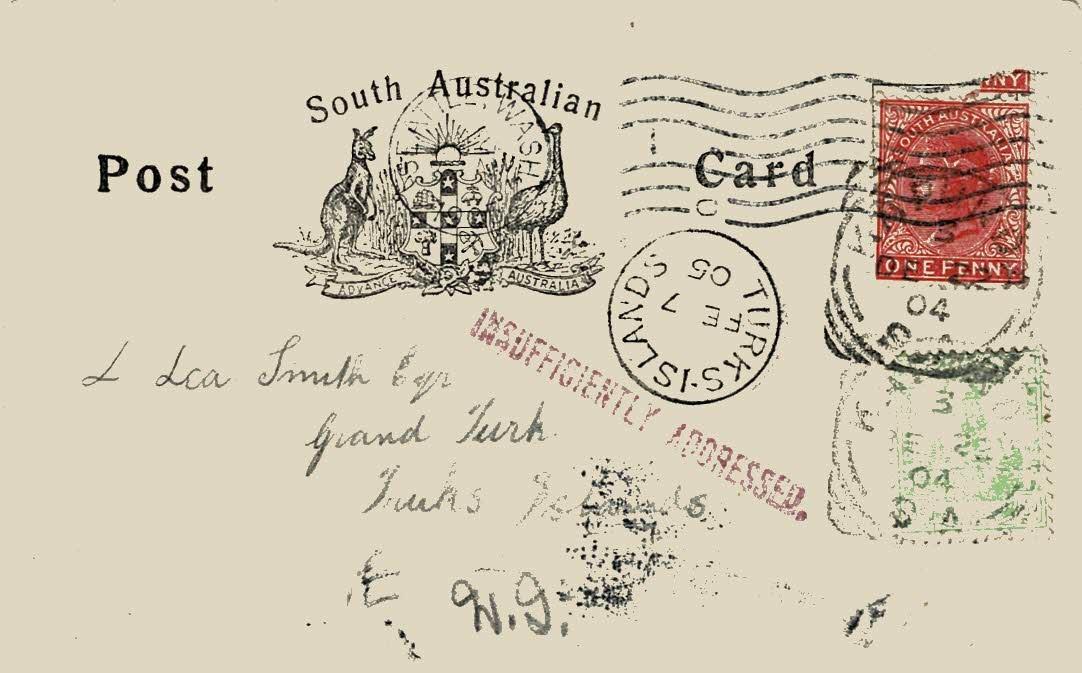 South Australian
Post Card
WASH.
ADVANCE AUSTRALIA
NNY
SOUTH AUSTRALIA
ONE PENNY
3
04
TURKS·ISLANDS
FE 7
05
INSUFFICIENTLY ADDRESSED.
L Lea Smith Esqr
Grand Turk
Turks Islands
W.I.
3
04